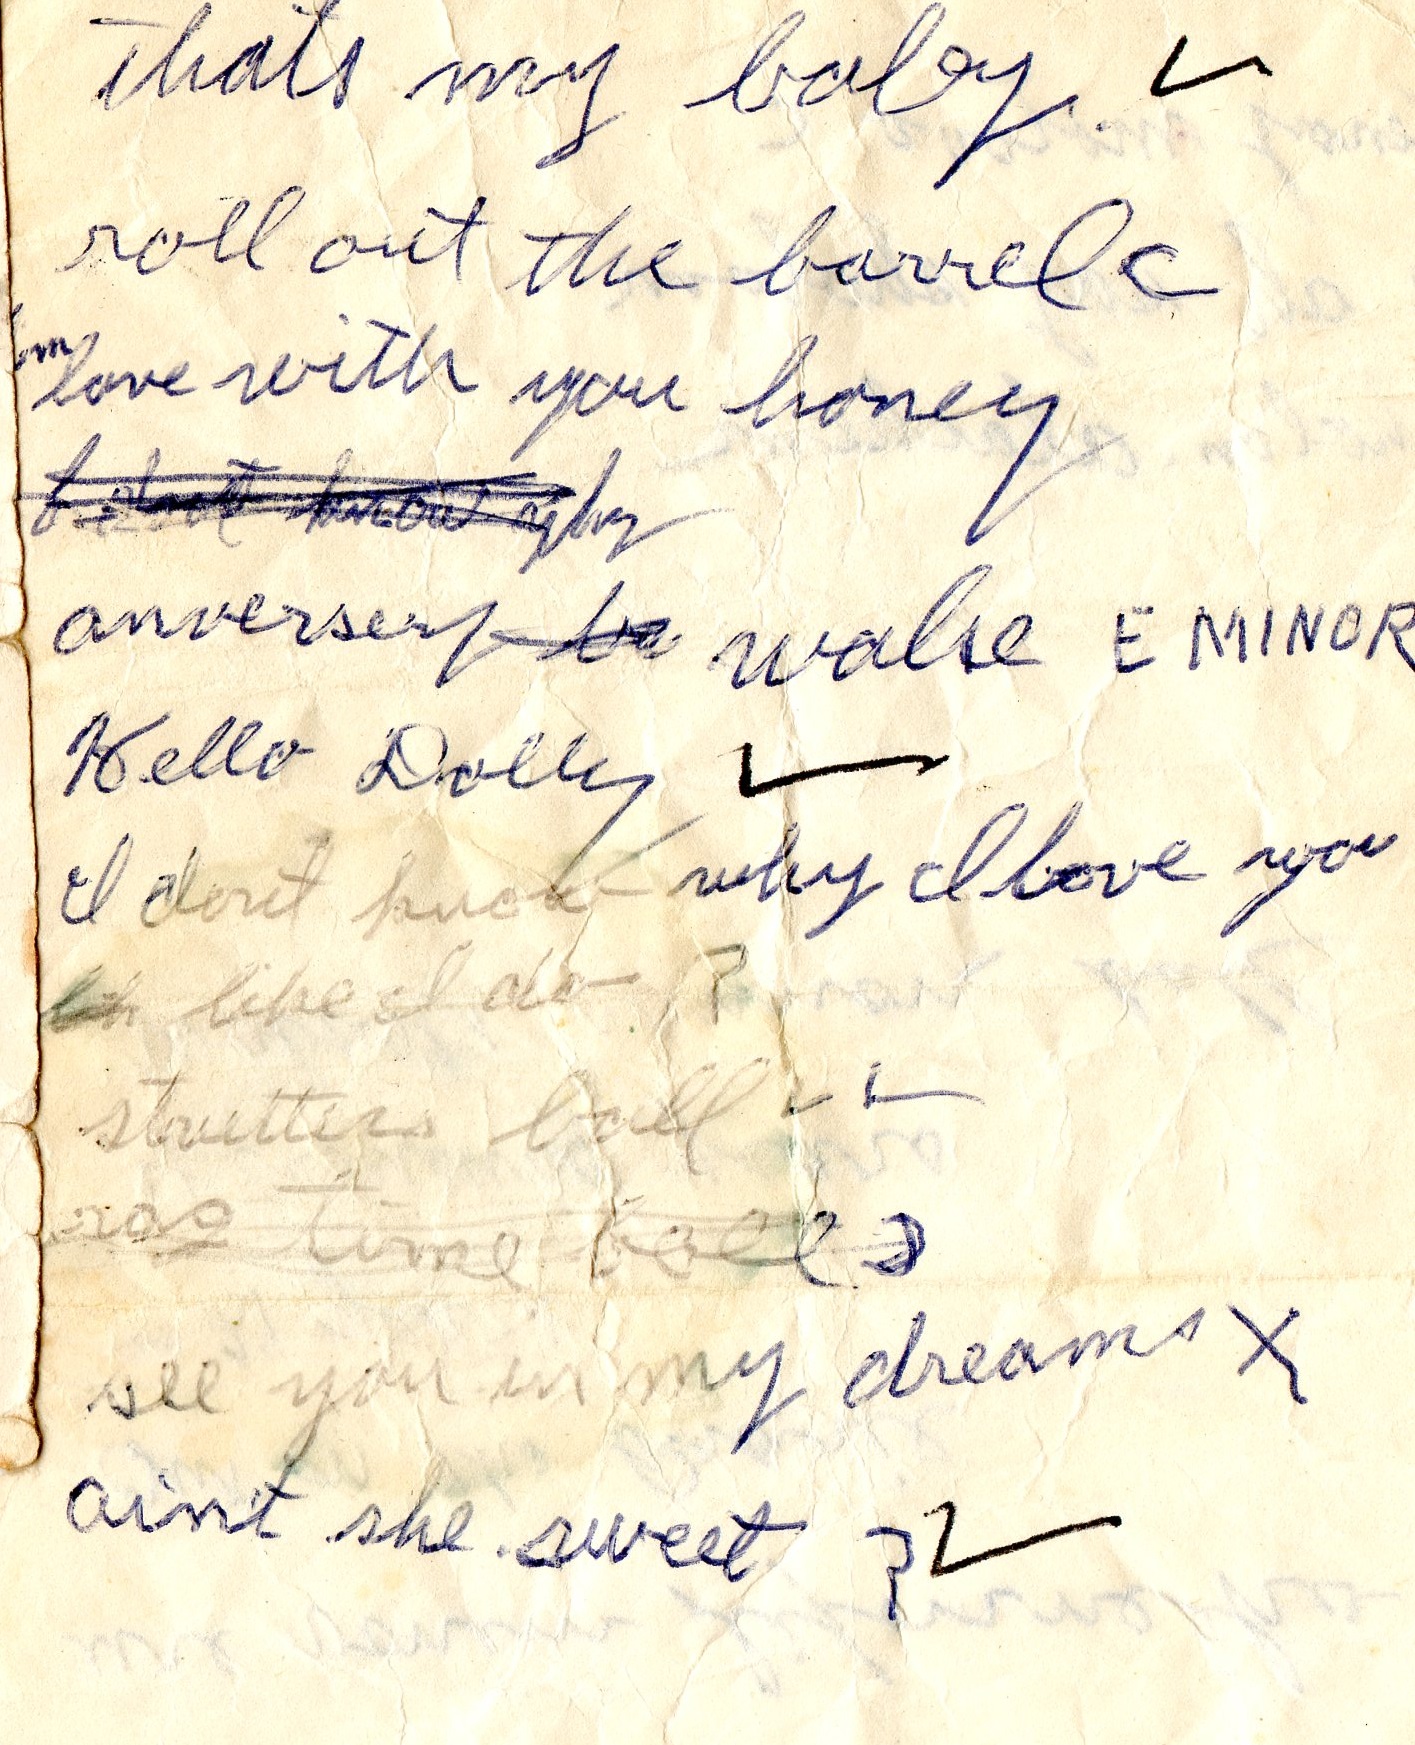 thats my baby. ✓
roll out the barrel C
im love with you honey
I dont know why
anversery walse E MINOR
Hello Dolly ✓
I dont know why I love you
like I do ?
strutters ball ✓ ✓
time ball
see you in my dreams X
aint she sweet ? ✓